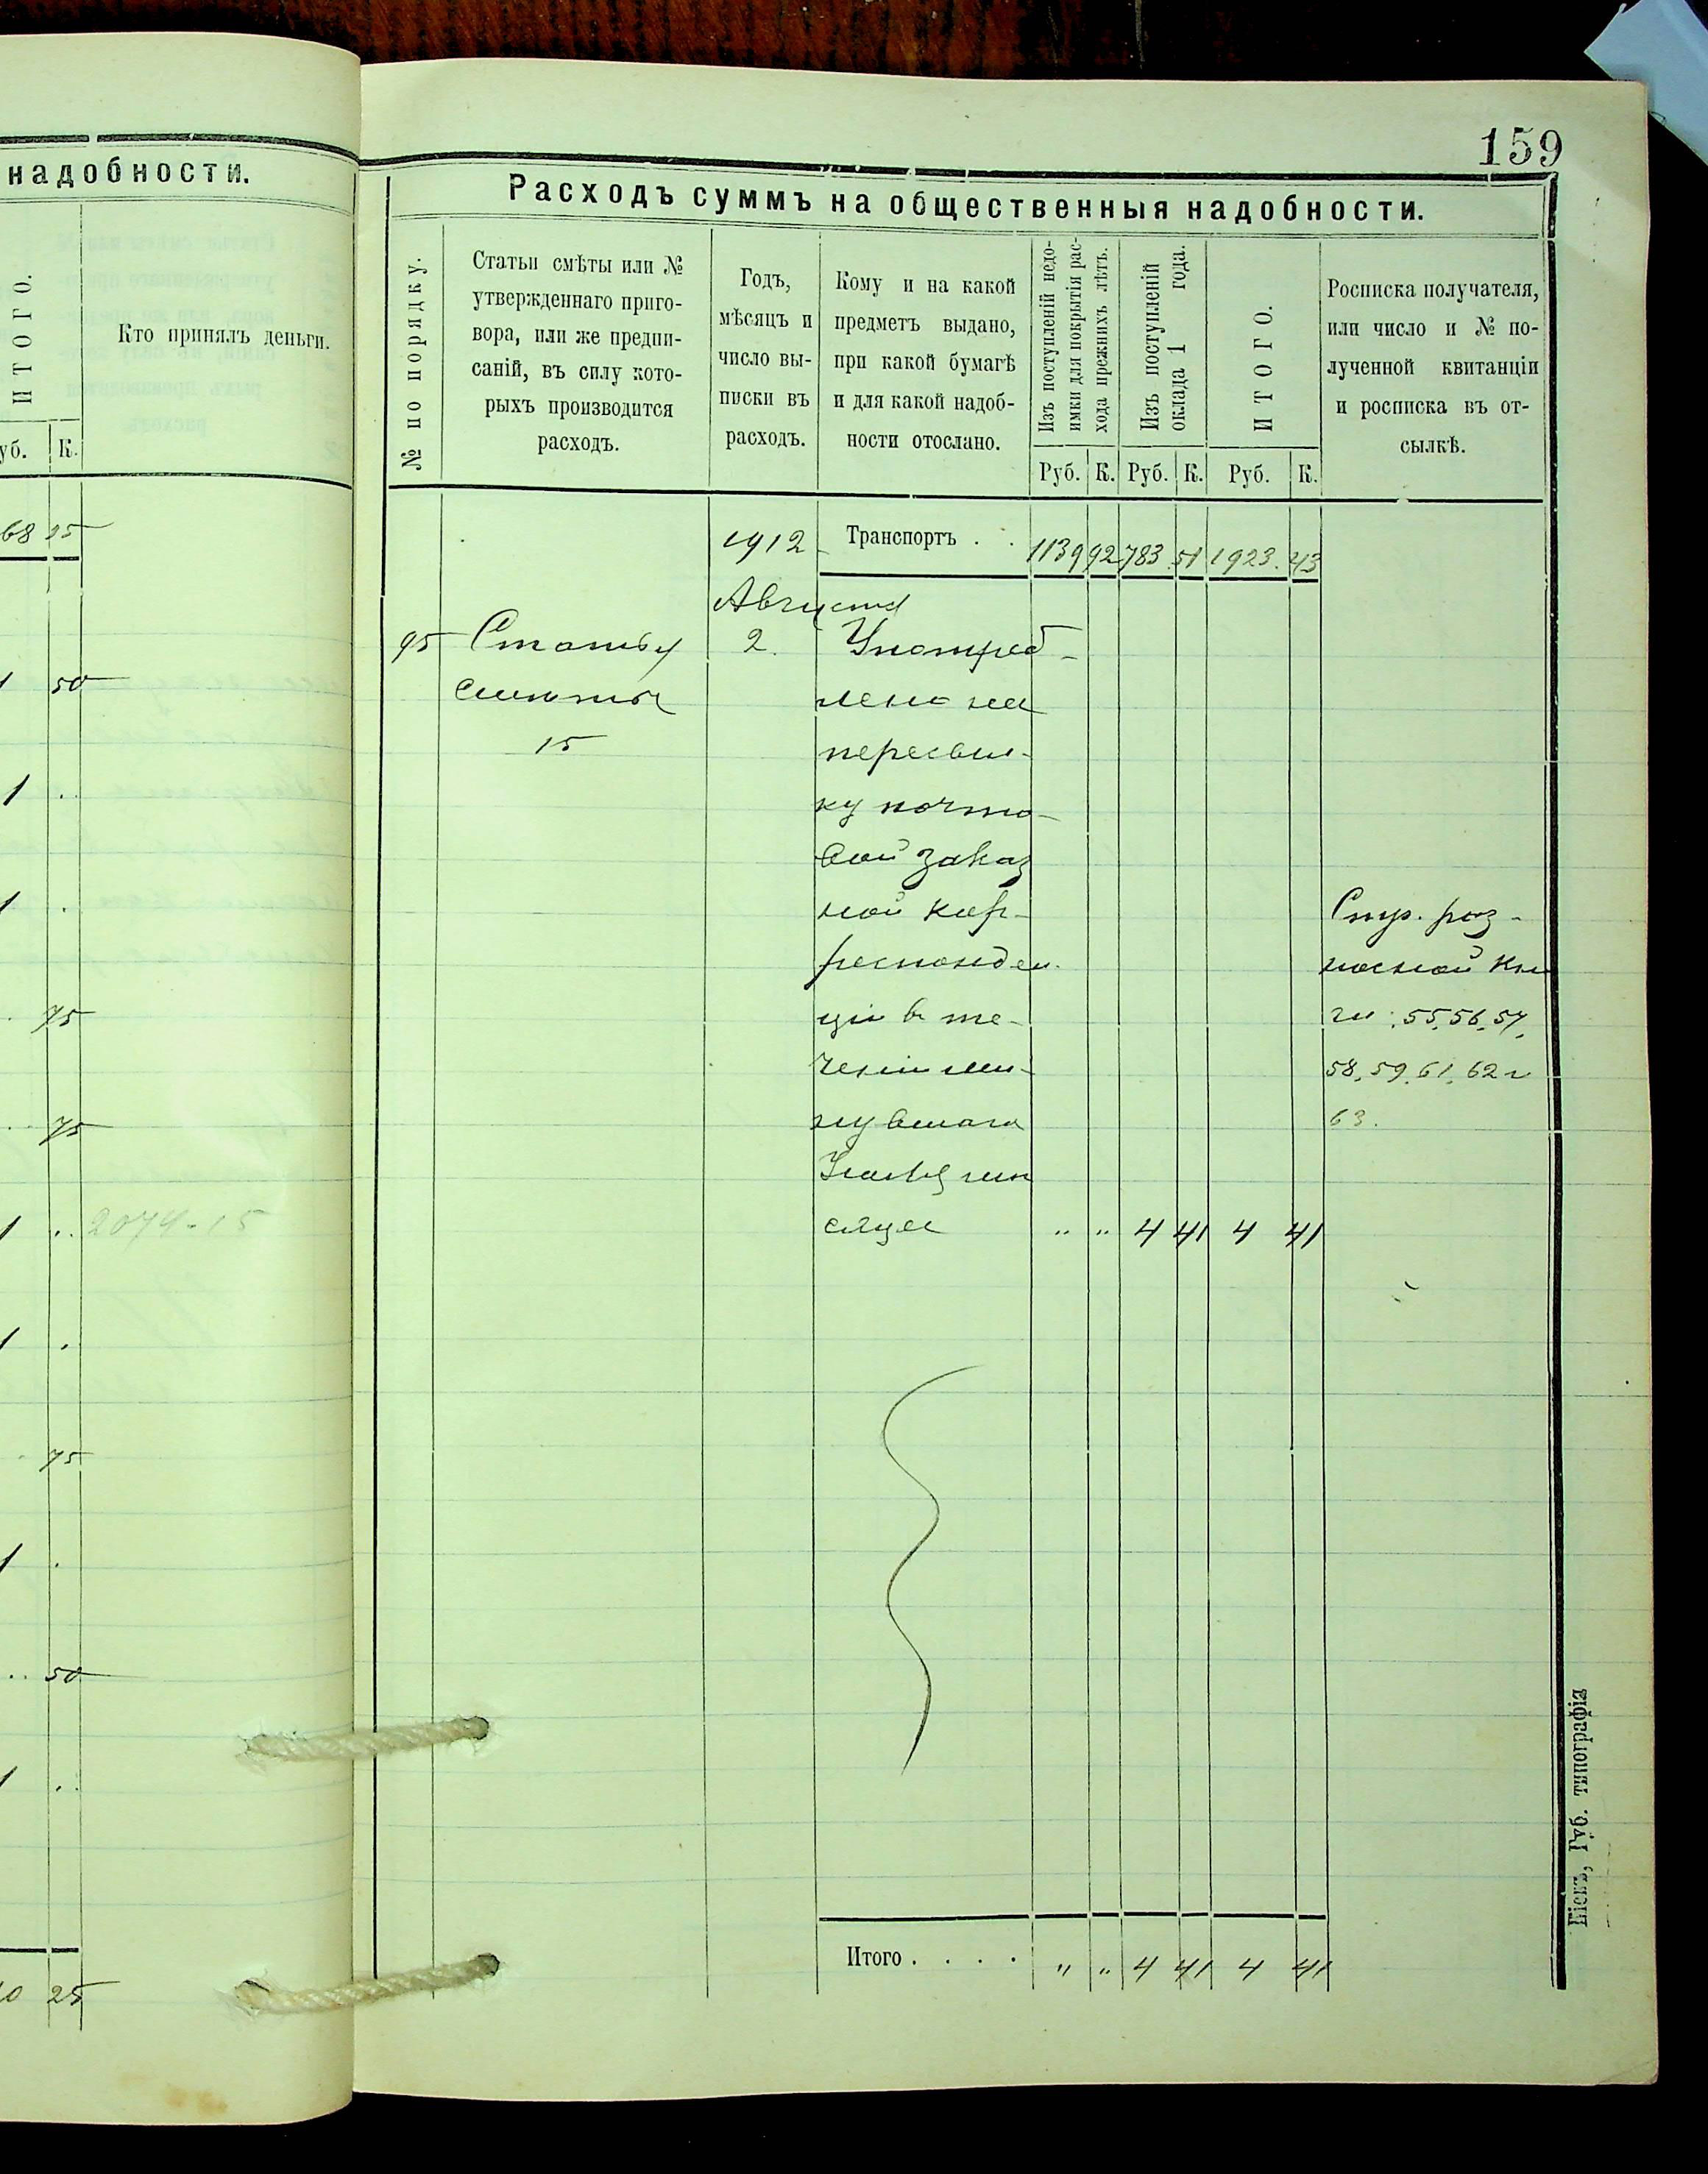 надобности.
ИТОГО.
Кто принялъ деньги.
уб.
К.
68 25
50
1
1
75
75
1 2074-15
1
75
1
50
1
0 25
159
Расходъ суммъ на общественныя надобности.
№ по порядку.
Статьи смѣты или №
утвержденнаго приго-
вора, или же предпи-
саній, въ силу кото-
рыхъ производится
расходъ.
Годъ,
мѣсяцъ и
число вы-
писки въ
расходъ.
Кому и на какой
предметъ выдано,
при какой бумагѣ
и для какой надоб-
ности отослано.
Изъ поступленій недо-
имки для покрытія рас-
хода прежнихъ лѣтъ.
Изъ поступленій
оклада 1 года.
ИТОГО.
Росписка получателя,
или число и № по-
лученной квитанціи
и росписка въ от-
сылкѣ.
Руб. К. Руб. К. Руб. К.
1912 Транспортъ . . 1139 92 783 51 1923. 43
Августа
95 Статья 2. Употреб-
смѣты лено на
15 пересыл-
ку почто-
вой заказ
ной кор-
респонден-
ціи в те-
ченіи ми-
нувшаго
мѣ
сяца „ „ 4 41 4 41
Стр. раз-
носной кни
ги: 55, 56, 57,
58, 59, 61, 62 и
63.
Итого . . . . „ „ 4 41 4 41
Мож. Губ. типографія